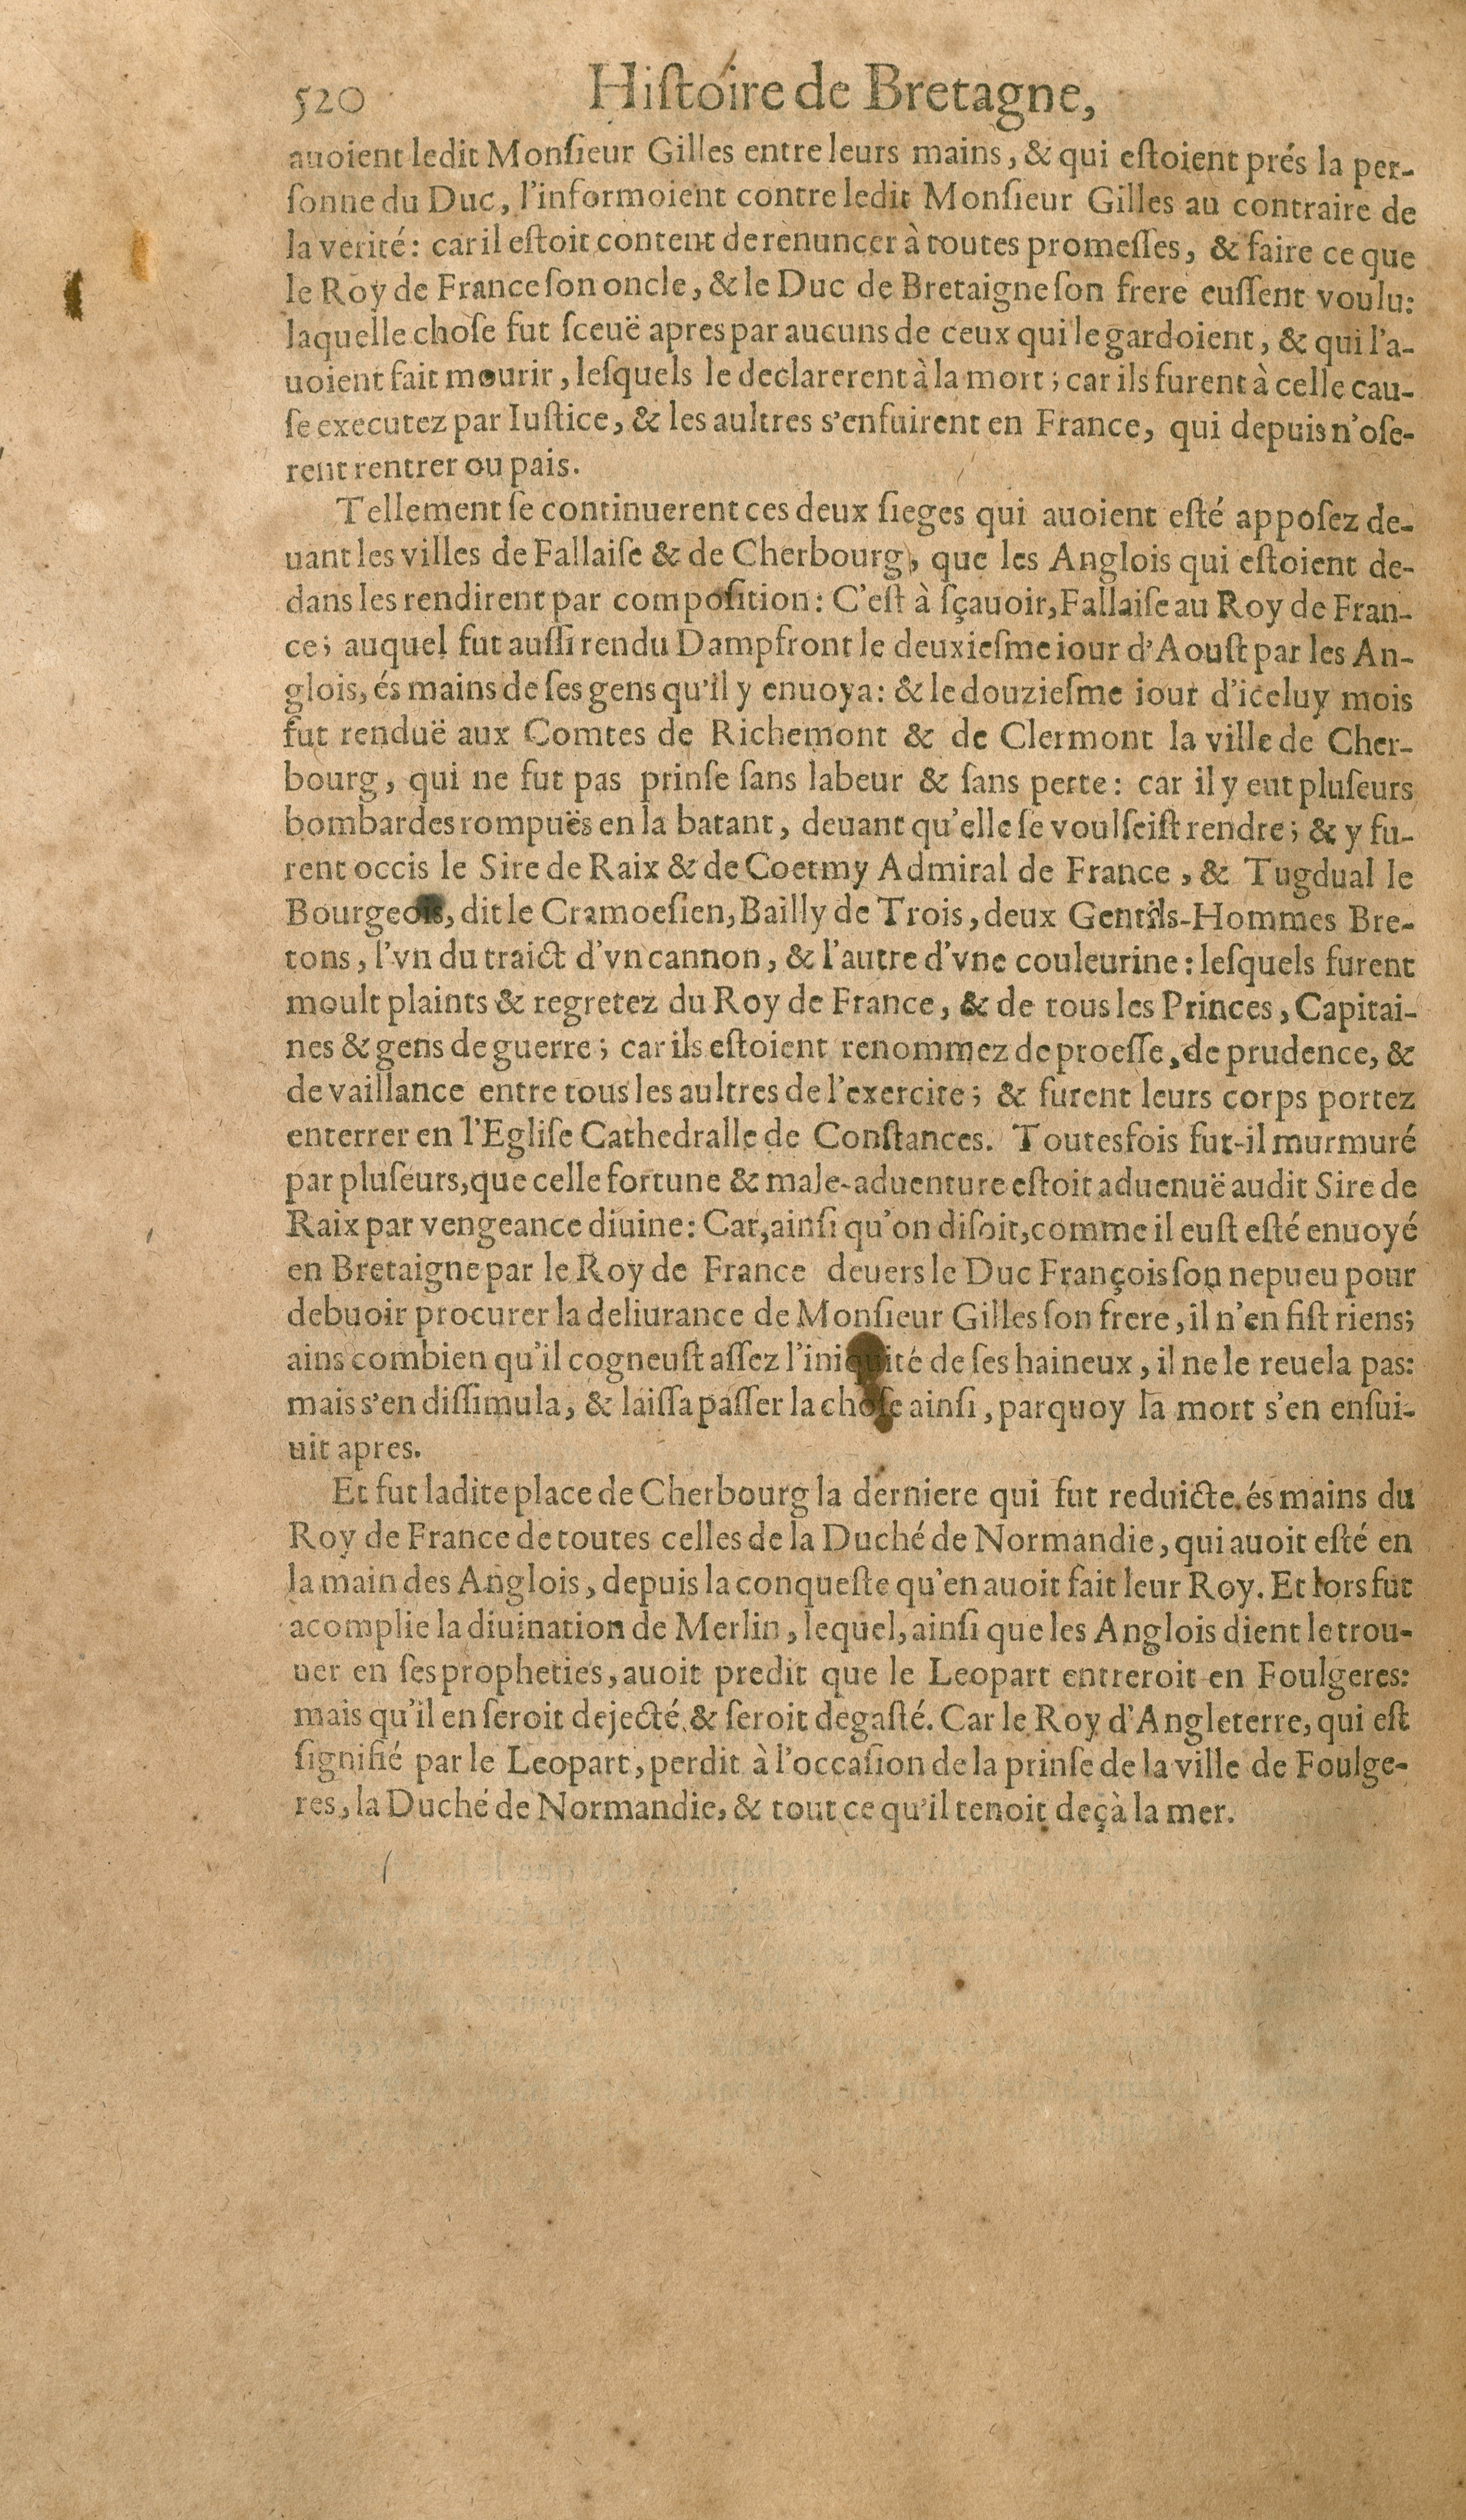 520 Hiſtoire de Bretagne,
auoient ledit Monſieur Gilles entre leurs mains, & qui eſtoient prés la per-
ſonne du Duc, l'informoient contre ledit Monſieur Gilles au contraire de
la verité: car il eſtoit content de renuncer à toutes promeſſes, & faire ce que
le Roy de France ſon oncle, & le Duc de Bretaigne ſon frere euſſent voulu:
laquelle choſe fut ſceuë apres par aucuns de ceux qui le gardoient, & qui l'a-
uoient fait mourir, leſquels le declarerent à la mort; car ils furent à celle cau-
ſe executez par Iuſtice, & les aultres s'enfuirent en France, qui depuis n'oſe-
rent rentrer ou pais.
Tellement ſe continuerent ces deux ſieges qui auoient eſté appoſez de-
uant les villes de Fallaiſe & de Cherbourg, que les Anglois qui eſtoient de-
dans les rendirent par compoſition: C'eſt à ſçauoir, Fallaiſe au Roy de Fran-
ce; auquel fut auſſi rendu Dampfront le deuxieſme iour d'Aouſt par les An-
glois, és mains de ſes gens qu'il y enuoya: & le douzieſme iour d'iceluy mois
fut renduë aux Comtes de Richemont & de Clermont la ville de Cher-
bourg, qui ne fut pas prinſe ſans labeur & ſans perte: car il y eut pluſeurs
bombardes rompuës en la batant, deuant qu'elle ſe voulſciſt rendre; & y fu-
rent occis le Sire de Raix & de Coetmy Admiral de France, & Tugdual le
Bourgeois, dit le Cramoeſien, Bailly de Trois, deux Gentils-Hommes Bre-
tons, l'vn du traict d'vn cannon, & l'autre d'vne couleurine: leſquels furent
moult plaints & regretez du Roy de France, & de tous les Princes, Capitai-
nes & gens de guerre; car ils eſtoient renommez de proeſſe, de prudence, &
de vaillance entre tous les aultres de l'exercite; & furent leurs corps portez
enterrer en l'Egliſe Cathedralle de Conſtances. Toutesfois fut-il murmuré
par pluſeurs, que celle fortune & male-aduenture eſtoit aduenuë audit Sire de
Raix par vengeance diuine: Car, ainſi qu'on diſoit, comme il euſt eſté enuoyé
en Bretaigne par le Roy de France deuers le Duc François ſon nepueu pour
debuoir procurer la deliurance de Monſieur Gilles ſon frere, il n'en fiſt riens;
ains combien qu'il cogneuſt aſſez l'iniquité de ſes haineux, il ne le reuela pas:
mais s'en diſſimula, & laiſſa paſſer la choſe ainſi, parquoy la mort s'en enſui-
uit apres.
Et fut ladite place de Cherbourg la derniere qui fut reduicte és mains du
Roy de France de toutes celles de la Duché de Normandie, qui auoit eſté en
la main des Anglois, depuis la conqueſte qu'en auoit fait leur Roy. Et lors fut
acomplie la diuination de Merlin, lequel, ainſi que les Anglois dient le trou-
uer en ſes propheties, auoit predit que le Leopart entreroit en Foulgeres:
mais qu'il en ſeroit dejecté, & ſeroit degaſté. Car le Roy d'Angleterre, qui eſt
ſignifié par le Leopart, perdit à l'occaſion de la prinſe de la ville de Foulge-
res, la Duché de Normandie, & tout ce qu'il tenoit deçà la mer.